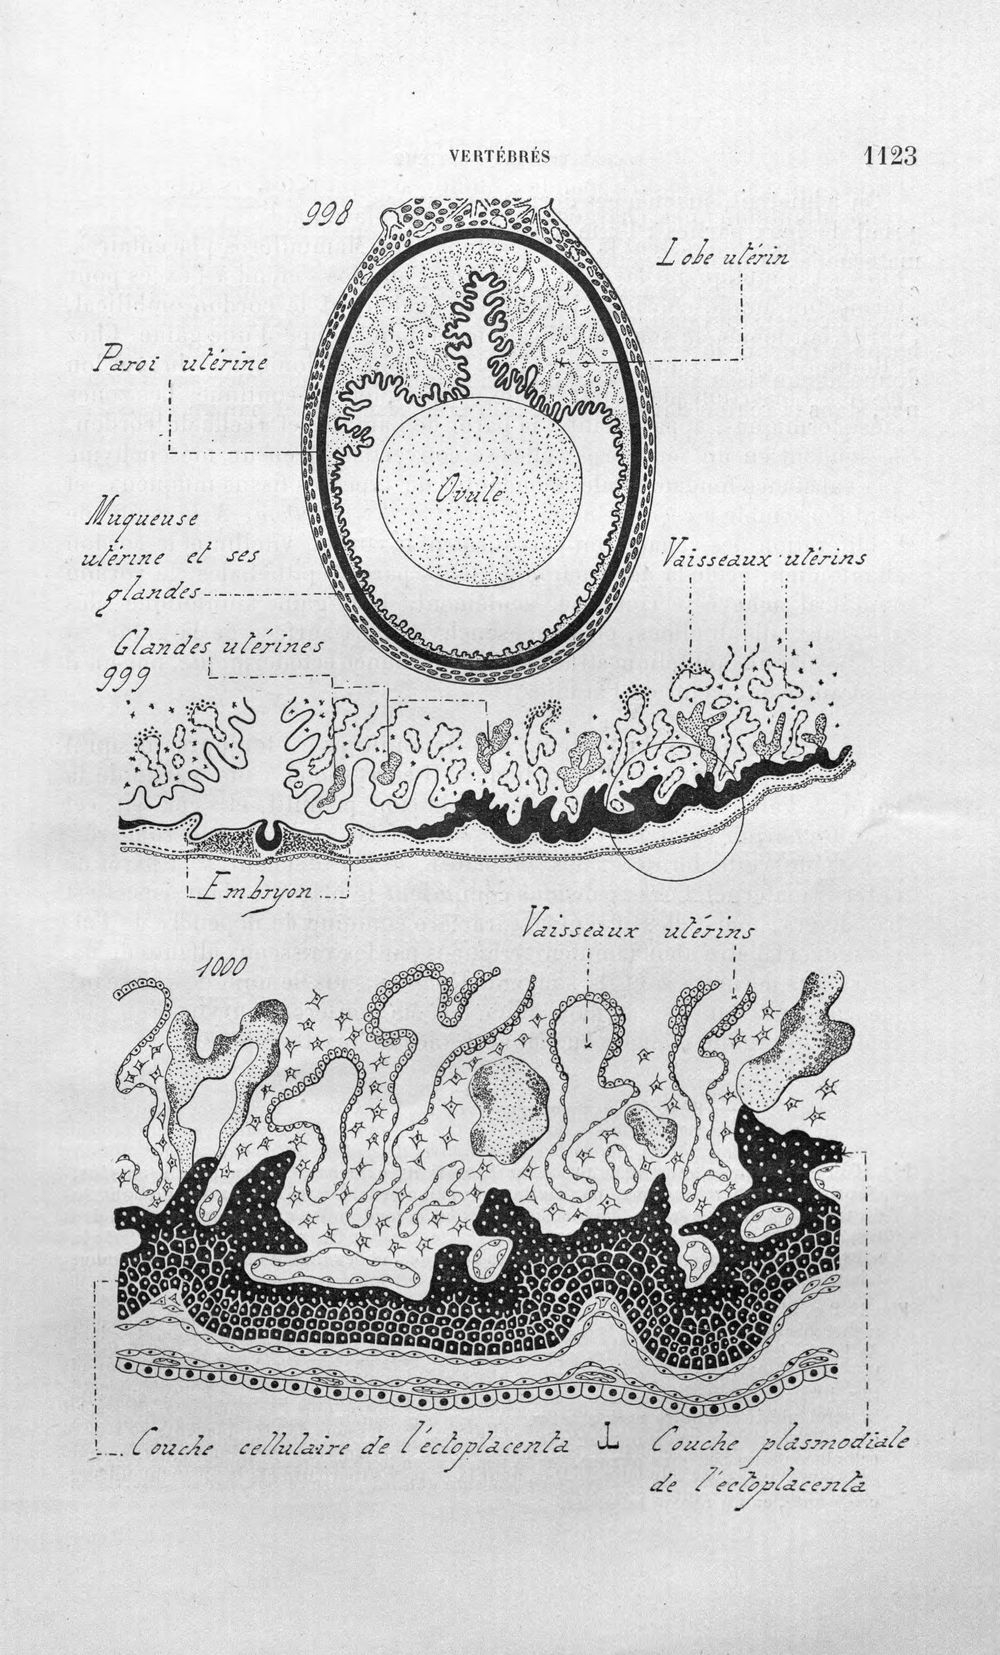 VERTÉBRÉS
1123
998
Lobe utérin
Paroi utérine
Ovule
Muqueuse
utérine et ses
glandes
Vaisseaux utérins
Glandes utérines
999
Embryon
Vaisseaux utérins
1000
Couche cellulaire de l'ectoplacenta
Couche plasmodiale
de l'ectoplacenta